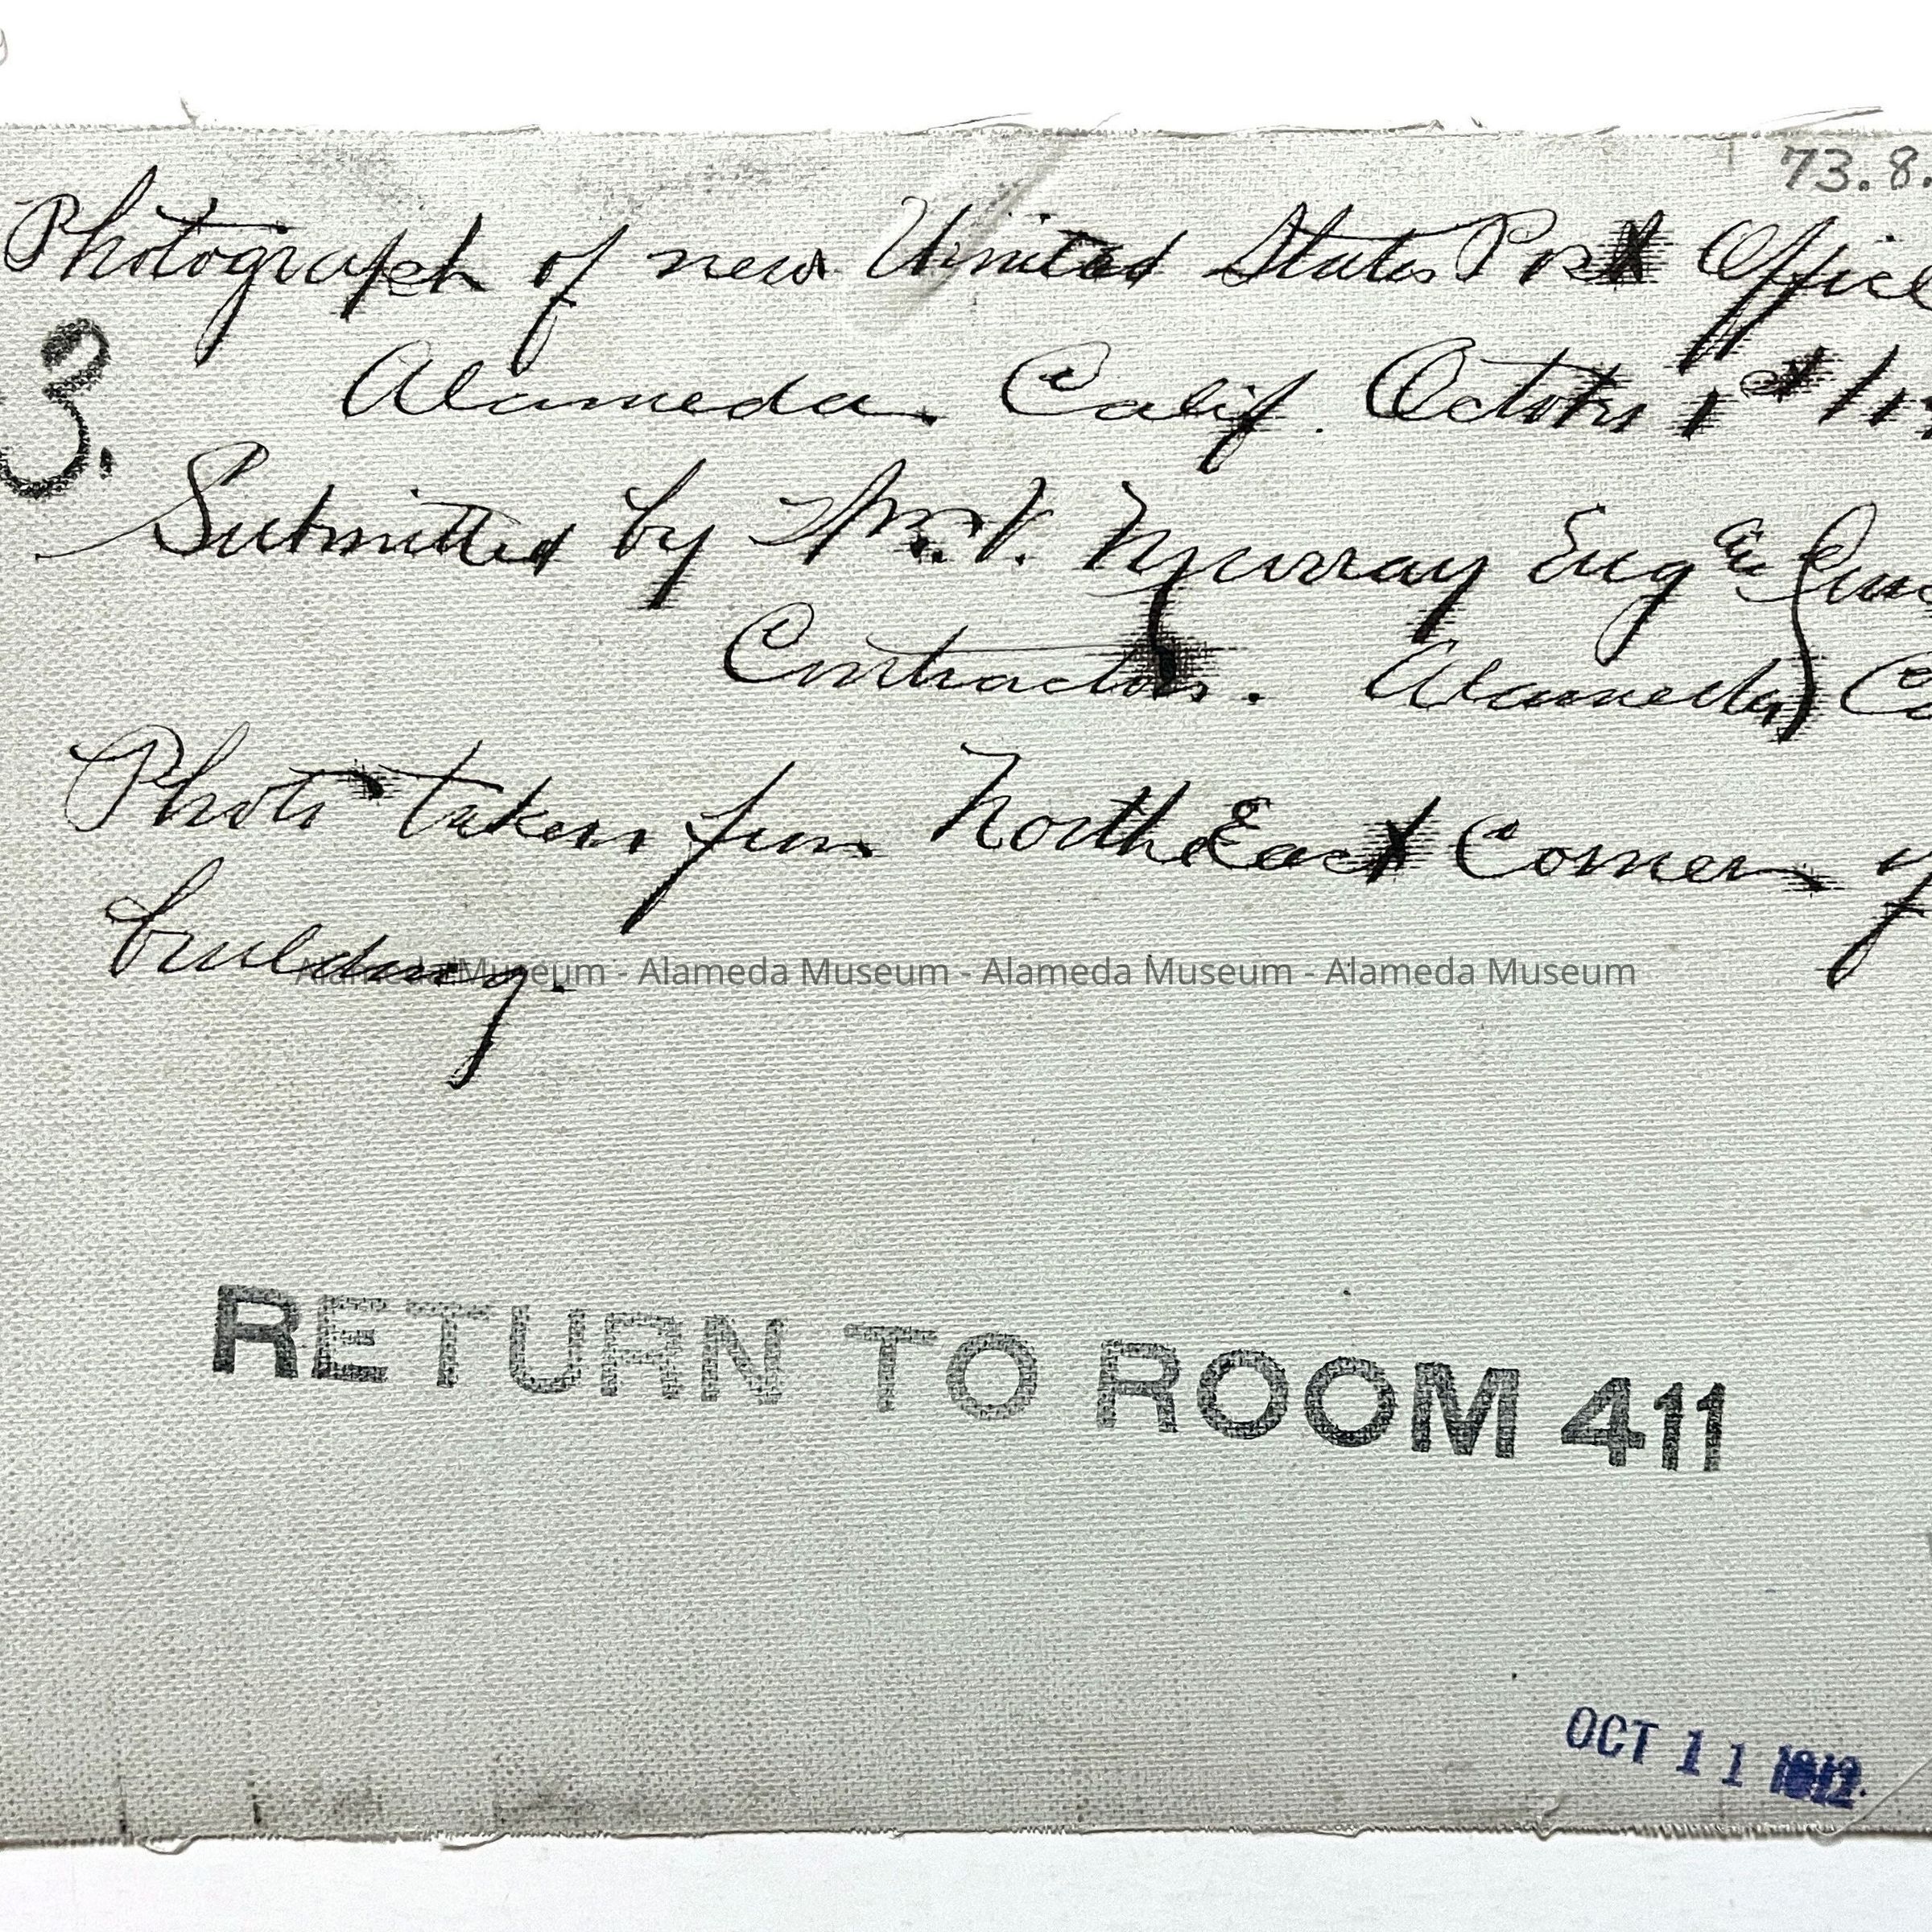 73.8.
Photograph of new United States Post Office
3.
Alameda Calif. October 1st
Submitted by Wm. V. Murray Eng
Contractors. Alameda
Photo taken from North East Corner of
building.
Alameda Museum - Alameda Museum - Alameda Museum - Alameda Museum
RETURN TO ROOM 411
OCT 11 1912.